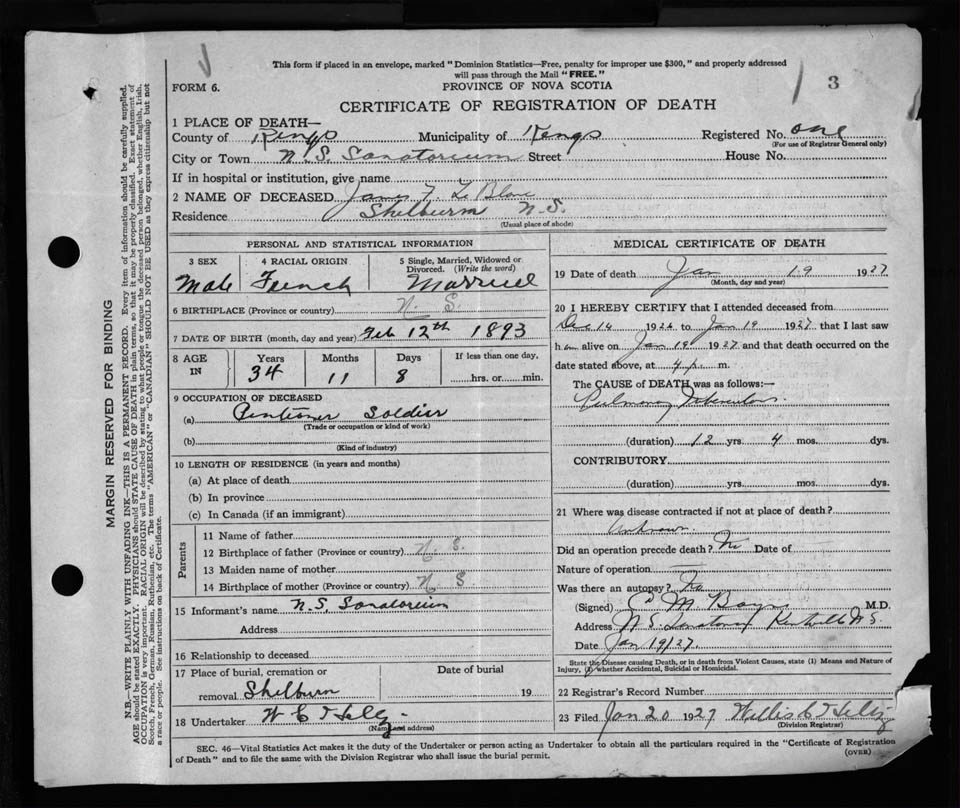 This form if placed in an envelope, marked "Dominion Statistics—Free, penalty for improper use $300," and properly addressed
will pass through the Mail "FREE."
FORM 6.
PROVINCE OF NOVA SCOTIA
3
CERTIFICATE OF REGISTRATION OF DEATH
1 PLACE OF DEATH—
County of Kings Municipality of Kings Registered No. one
(For use of Registrar General only)
City or Town N. S. Sanatorium Street House No.
If in hospital or institution, give name
2 NAME OF DECEASED James F. Le Blanc
Residence Shelburn N.S.
(Usual place of abode)
PERSONAL AND STATISTICAL INFORMATION
3 SEX 4 RACIAL ORIGIN 5 Single, Married, Widowed or
Divorced. (Write the word)
Male French Married
6 BIRTHPLACE (Province or country) N. S.
7 DATE OF BIRTH (month, day and year) Feb 12th 1893
8 AGE IN Years Months Days If less than one day,
34 11 8 hrs. or min.
9 OCCUPATION OF DECEASED
(a) Pentioner Soldier
(Trade or occupation or kind of work)
(b)
(Kind of industry)
10 LENGTH OF RESIDENCE (in years and months)
(a) At place of death
(b) In province
(c) In Canada (if an immigrant)
Parents
11 Name of father
12 Birthplace of father (Province or country) N. S.
13 Maiden name of mother
14 Birthplace of mother (Province or country) N. S
15 Informant's name N. S. Sanatorium
Address
16 Relationship to deceased
17 Place of burial, cremation or Date of burial
removal Shelburn 19
18 Undertaker W C
(Name and address)
MEDICAL CERTIFICATE OF DEATH
19 Date of death Jan 19 1927
(Month, day and year)
20 I HEREBY CERTIFY that I attended deceased from
Dec 14 1926 to Jan 19 1927 that I last saw
h im alive on Jan 19 1927 and that death occurred on the
date stated above, at 4 p. m.
The CAUSE of DEATH was as follows:—
Pulmonary Tuberculosis
(duration) 12 yrs. 4 mos. dys.
CONTRIBUTORY
(duration) yrs. mos. dys.
21 Where was disease contracted if not at place of death?
Unknown
Did an operation precede death? No Date of
Nature of operation
Was there an autopsy? No
(Signed) M.D.
Address N S Sanatorium Kentville N S.
Date Jan 19/27
State the Disease causing Death, or in death from Violent Causes, state (1) Means and Nature of
Injury, (2) whether Accidental, Suicidal or Homicidal.
22 Registrar's Record Number
23 Filed Jan 20 1927 Willis C
(Division Registrar)
SEC. 46—Vital Statistics Act makes it the duty of the Undertaker or person acting as Undertaker to obtain all the particulars required in the "Certificate of Registration
of Death" and to file the same with the Division Registrar who shall issue the burial permit. (OVER)
MARGIN RESERVED FOR BINDING
N.B.—WRITE PLAINLY WITH UNFADING INK—THIS IS A PERMANENT RECORD. Every item of information should be carefully supplied.
AGE should be stated EXACTLY. PHYSICIANS should STATE CAUSE OF DEATH in plain terms, so that it may be properly classified. Exact statement of
OCCUPATION is very important. RACIAL ORIGIN will be described by stating to what people or tongue the deceased person belonged, whether English, Irish,
Scotch, French, German, Russian, Ruthenian, etc. The terms "AMERICAN" or "CANADIAN" SHOULD NOT BE USED as they express citizenship but not
a race or people. See instructions on back of Certificate.